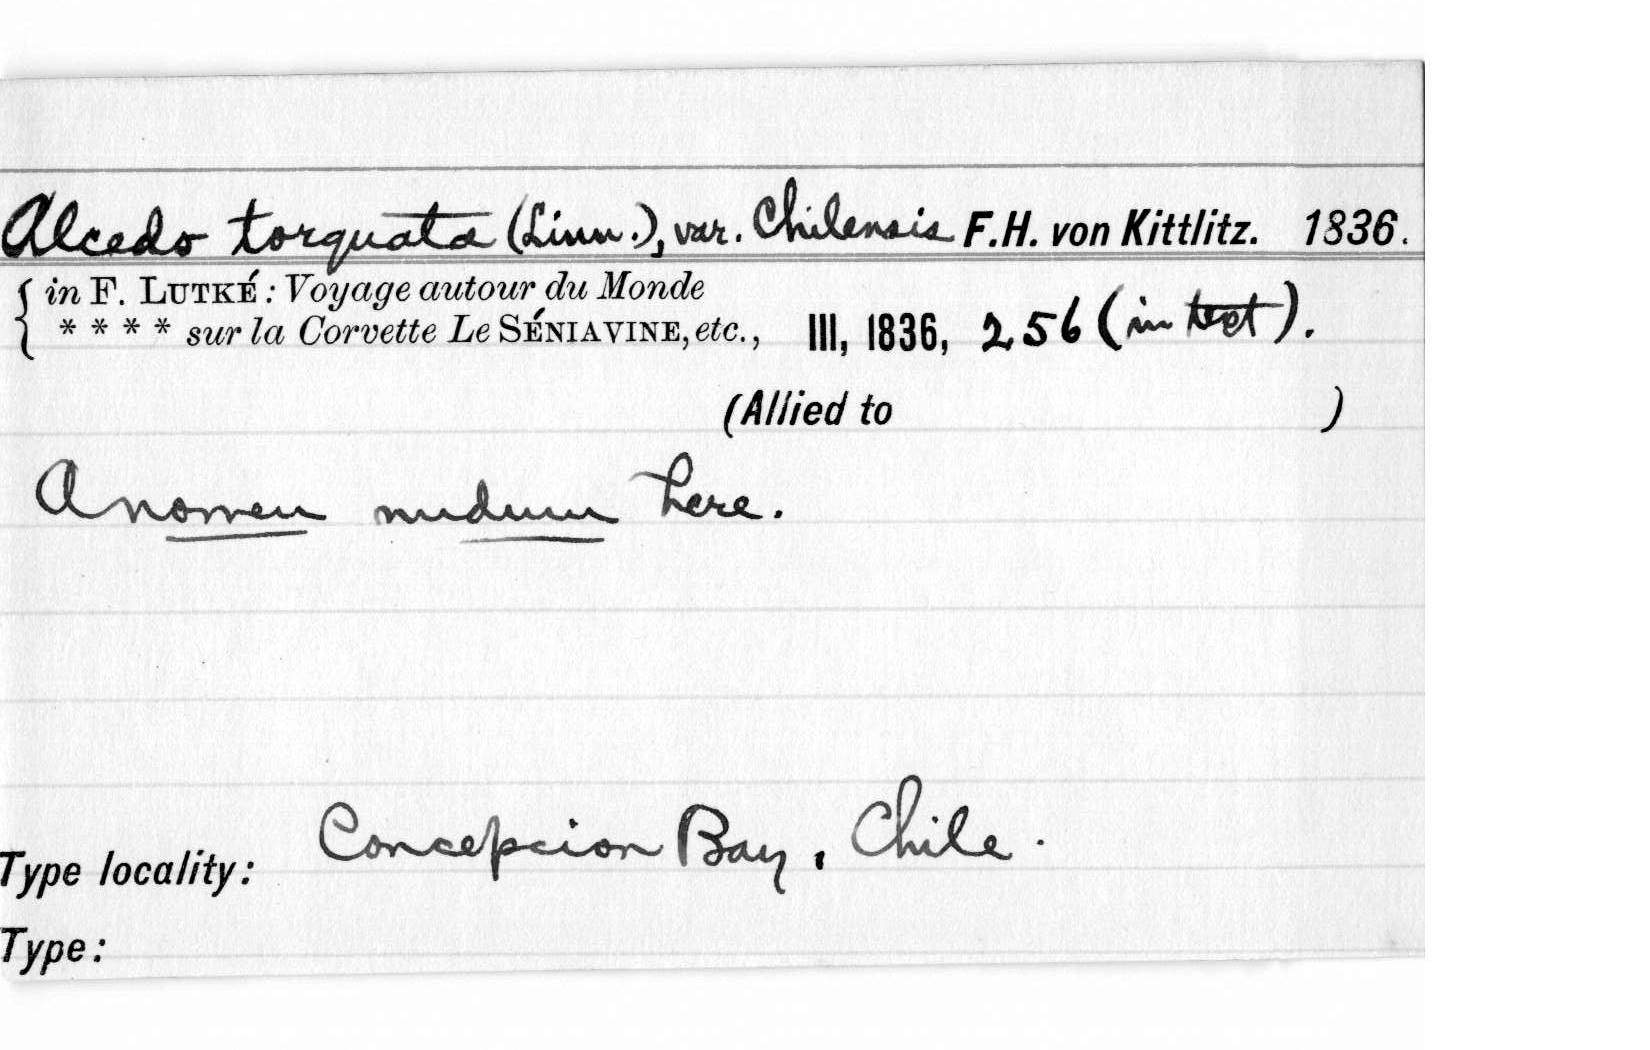 Alcedo torquata (Linn.), var. Chilensis F.H. von Kittlitz. 1836.
in F. LUTKÉ: Voyage autour du Monde
* * * * sur la Corvette Le SÉNIAVINE, etc., III, 1836, 256 (in text).
(Allied to )
A nomen nudum here.
Type locality: Concepcion Bay, Chile.
Type: